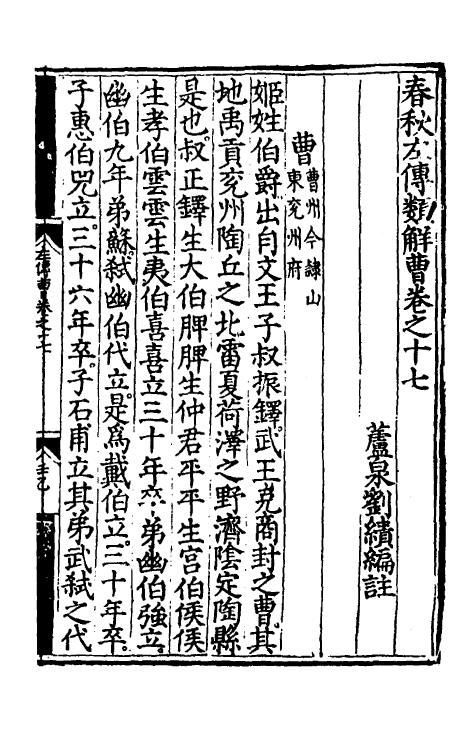 春秋左傳類解曹卷之十七
蘆泉劉績編註
曹
曹州今隷山
東兖州府
姬姓伯爵出自文王子叔振鐸武王克商封之曹其
地禹貢兖州陶丘之北雷夏荷澤之野濟陰定陶縣
是也叔正鐸生大伯脾脾生仲君平平生宫伯侯侯
生孝伯雲雲生夷伯喜喜立三十年卒弟幽伯強立
幽伯九年弟蘇弑幽伯代立是爲戴伯立三十年卒
子惠伯兕立三十六年卒子石甫立其弟武弑之代
左傳曹卷之十七